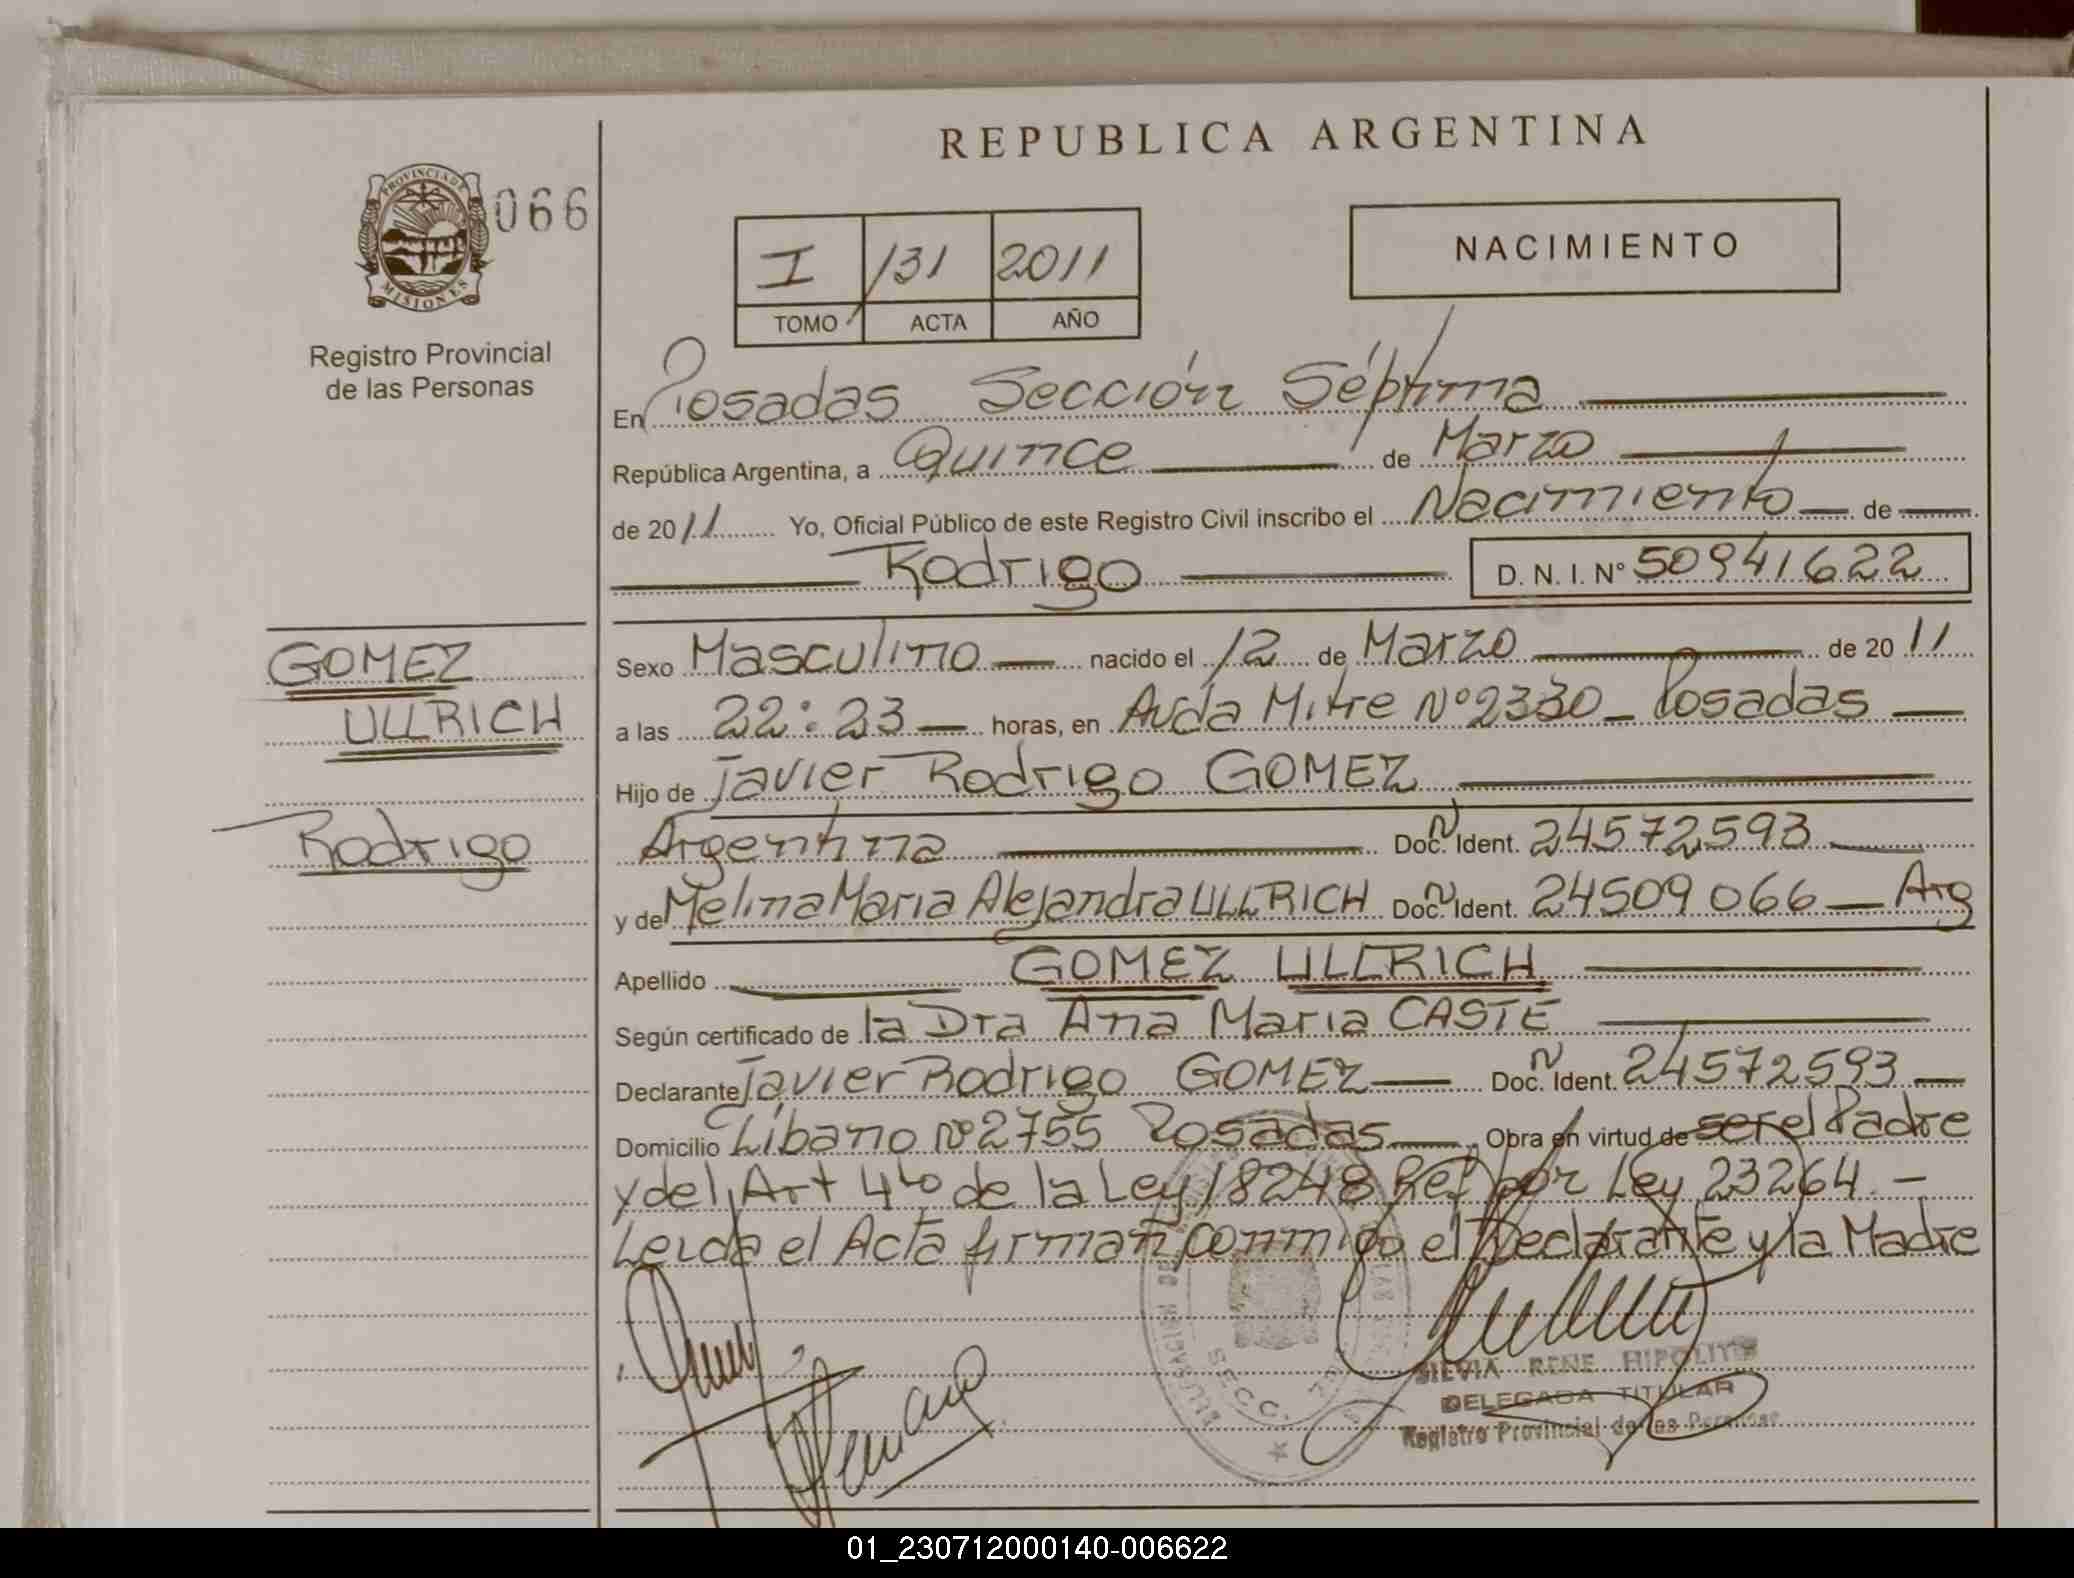 REPUBLICA ARGENTINA
PROVINCIA DE
MISIONES
066
Registro Provincial
de las Personas
I 131 2011
TOMO ACTA AÑO
NACIMIENTO
En Posadas Sección Séptima
República Argentina, a Quince de Marzo
de 2011 Yo, Oficial Público de este Registro Civil inscribo el Nacimiento de
Rodrigo D. N. I. N° 50941622
GOMEZ
ULLRICH
Rodrigo
Sexo Masculino nacido el 12 de Marzo de 2011
a las 22:23 horas, en Avda Mitre Nº 2330 - Posadas
Hijo de Javier Rodrigo GOMEZ
Argentina Doc. Ident. 24572593
y de Melina Maria Alejandra ULLRICH Doc. Ident. 24509066 - Arg
Apellido GOMEZ ULLRICH
Según certificado de la Dra Ana Maria CASTE
Declarante Javier Rodrigo GOMEZ Doc. Ident. 24572593
Domicilio Libano Nº 2755 Posadas Obra en virtud de ser el Padre
y del Art 4to de la Ley 18248 Ref por Ley 23264.-
Leida el Acta firman conmigo el Declarante y la Madre
SECC. 7
SILVIA RENE HIPOLITO
DELEGADA TITULAR
Registro Provincial de las Personas
01_230712000140-006622